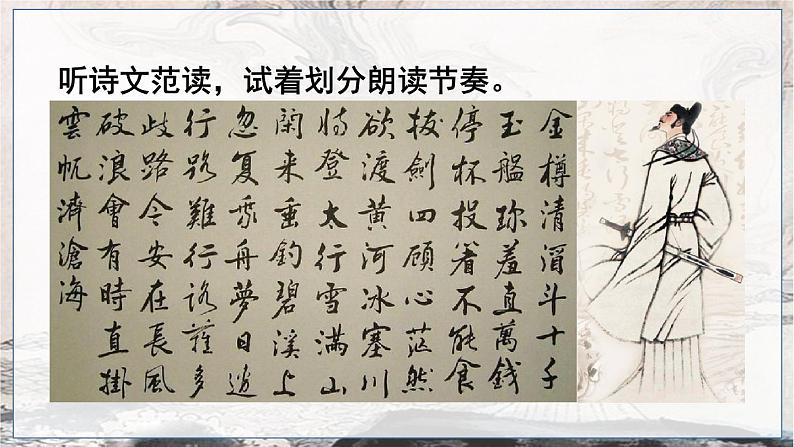 听诗文范读，试着划分朗读节奏。
金樽清酒斗十千
玉盤珍羞直萬錢
停杯投箸不能食
拔劍四顧心茫然
欲渡黄河冰塞川
將登太行雪滿山
閑来垂釣碧溪上
忽復乘舟夢日邊
行路難行路難多
歧路今安在長風
破浪會有時直掛
雲帆濟滄海